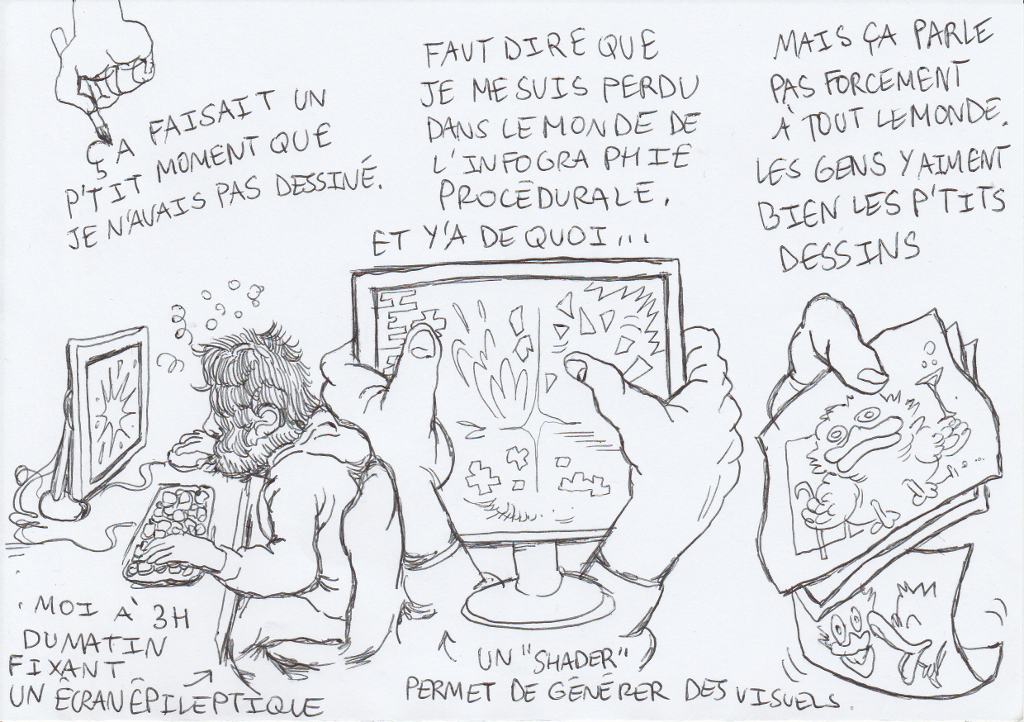 ÇA FAISAIT UN
P'TIT MOMENT QUE
JE N'AVAIS PAS DESSINÉ.
FAUT DIRE QUE
JE ME SUIS PERDU
DANS LE MONDE DE
L'INFOGRAPHIE
PROCÉDURALE.
ET Y'A DE QUOI...
MAIS ÇA PARLE
PAS FORCEMENT
À TOUT LE MONDE.
LES GENS Y AIMENT
BIEN LES P'TITS
DESSINS
MOI À 3H
DU MATIN
FIXANT
UN ÉCRAN ÉPILEPTIQUE
UN "SHADER"
PERMET DE GÉNÉRER DES VISUELS.